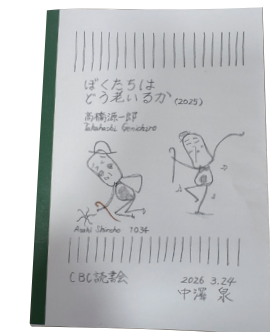 ぼくたちは
どう老いるか (2025)
高橋源一郎
Takahashi Genichiro
Asaki Shincho 1034
CBC読書会
2026 3.24
中濱 泉